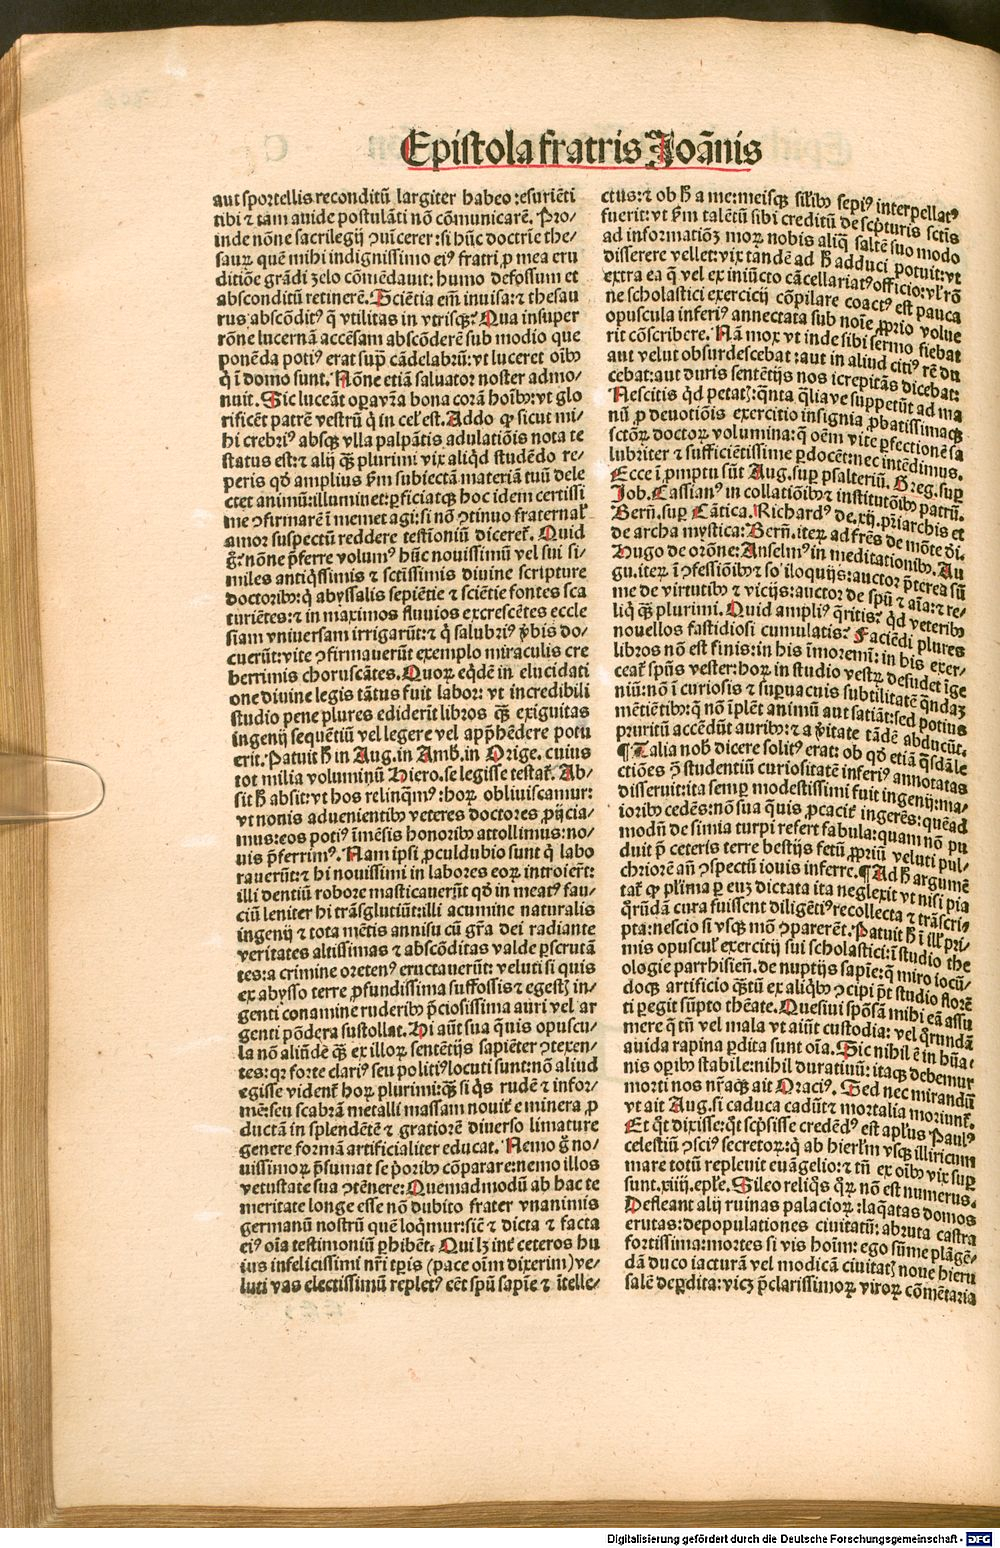 Epistola fratris Joãnis
aut sportellis reconditũ largiter habeo: esuriẽti
tibi ⁊ tam auide postulãti nõ cõmunicarẽ. Pro/
inde nõne sacrilegij ꝯuĩcerer: si hũc doctrĩe the/
saurꝫ quẽ mihi indignissimo eiꝰ fratri ꝓ mea eru
ditiõe grãdi zelo cõmẽdauit: humo defossum et
absconditũ retinerẽ. Sciẽtia em̃ inuisa: ⁊ thesau
rus abscõditꝰ q̃ vtilitas in vtrisqꝫ? Qua insuper
rõne lucernã accẽsam abscõderẽ sub modio que
ponẽda potiꝰ erat supꝫ cãdelabrũ: vt luceret oĩbꝰ
q̃ ĩ domo sunt. Nõne etiã saluator noster admo/
nuit. Sic luceãt oꝑa vr̃a bona corã hoĩbꝰ: vt glo
rificẽt patrẽ vestrũ q̃ in cel̃ est. Addo ꝙ sicut mi/
hi crebriꝰ absqꝫ vlla palpãtis adulatiõis nota te
status est: ⁊ alij qꝫ̃ plurimi vix aliqd̃ studẽdo re/
peris qd̃ amplius ẜm subiectã materiã tuũ dele
ctet animũ: illuminet: ꝑficiatqꝫ hoc idem certissi
me ꝯfirmarẽ ĩ memet agi: si nõ ꝯtinuo fraternal̃
amor suspectũ reddere testioniũ diceret̃. Quid
g̃? nõne p̃ferre volumꝰ hũc nouissimũ vel sui si/
miles antiq̃ssimis ⁊ sctissimis diuine scripture
doctoribꝰ: q̃ abyssalis sepiẽtie ⁊ sciẽtie fontes sca
turiẽtes: ⁊ in maximos fluuios excrescẽtes eccle
siam vniuersam irrigarũt: ⁊ q̃ salubriꝰ ṽbis do/
cuerũt: vite ꝯfirmauerũt exemplo miraculis cre
berrimis choruscãtes. Quoꝝ eqd̃ẽ in elucidati
one diuine legis tãtus fuit labor: vt incredibili
studio pene plures ediderĩt libros qꝫ̃ exiguitas
ingenij sequẽtiũ vel legere vel app̃hẽdere potu
erit. Patuit h̃ in Aug. in Amb. in Orige. cuius
tot milia voluminũ Hiero. se legisse testat̃. Ab/
sit h̃ absit: vt hos relinq̃mꝰ: hoꝝ obliuiscamur:
vt nonis aduenientibꝰ veteres doctores ꝓijcia/
mus: eos potiꝰ ĩmẽsis honoribꝰ attollimus: no/
uis p̃ferrimꝰ. Nam ipsi ꝓculdubio sunt q̃ labo
rauerũt: ⁊ hi nouissimi in labores eoꝝ introier̃t:
illi dentiũ robore masticauerũt qd̃ in meatꝰ fau/
ciũ leniter hi trãsglutiũt: illi acumine naturalis
ingenij ⁊ tota mẽtis annisu cũ gr̃a dei radiante
veritates altissimas ⁊ abscõditas valde ꝑscrutã
tes: a crimine oretenꝰ eructauerũt: veluti si quis
ex abysso terre ꝓfundissima suffossis ⁊ egestꝭ in/
genti conamine ruderibꝰ p̃ciosissima auri vel ar
genti põdera sustollat. Hi aũt sua q̃uis opuscu/
la nõ aliũde qꝫ̃ ex illoꝝ sentẽtijs sapiẽter ꝯtexen/
tes: qꝛ forte clariꝰ seu politiꝰ locuti sunt: nõ aliud
egisse vident̃ hoꝝ plurimi: qꝫ̃ si q̃s rudẽ ⁊ infor/
mẽ: seu scabrã metalli massam nouit̃ e minera ꝓ
ductã in splendẽtẽ ⁊ gratiorẽ diuerso limature
genere formã artificialiter educat. Nemo g̃ no/
uissimoꝝ p̃sumat se p̃oribꝰ cõparare: nemo illos
vetustate sua ꝯtẽnere: Quemadmodũ ab hac te
meritate longe esse nõ dubito frater vnanimis
germanũ nostrũ quẽ loq̃mur: sic̃ ⁊ dicta ⁊ facta
eiꝰ oĩa testimoniũ ꝑhibẽt. Qui lꝫ int̃ ceteros hu
ius infelicissimi nr̃i tp̃is (pace oĩm dixerim) ve/
luti vas electissimũ repletꝰ eẽt spũ sapĩe ⁊ ĩtelle/
ctus: ⁊ ob h̃ a me: meisqꝫ sil̃ibꝰ sepiꝰ interpellatꝰ
fuerit: vt ẜm talẽtũ sibi creditũ de scpturis sctis
ad informatiõꝫ moꝝ nobis aliq̃ saltẽ suo modo
disserere vellet: vix tandẽ ad h̃ adduci potuit: vt
extra ea q̃ vel ex iniũcto cãcellariatꝰ officio: vl̃ rõ
ne scholastici exercicij cõpilare coactꝰ est pauca
opuscula inferiꝰ annectata sub noĩe ꝓprio volue
rit cõscribere. Nã mox vt inde sibi sermo fiebat
aut velut obsurdescebat: aut in aliud citiꝰ rẽ du
cebat: aut duris sentẽtijs nos icrepitãs dicebat:
Nescitis qd̃ petatꝭ: q̃nta q̃liaue suppetũt ad ma
nũ ꝓ deuotiõis exercitio insignia ꝓbatissimaqꝫ
sctõꝝ doctoꝝ volumina: q̃ oẽm vite ꝑfectionẽ sa
lubriter ⁊ sufficiẽtissime ꝑdocẽt: nec intẽdimus.
Ecce ĩ ꝓmptu sũt Aug. suꝑ psalteriũ. Greg. suꝑ
Job. Cassianꝰ in collatiõibꝰ ⁊ institutõibꝰ patrũ.
Bern̄. suꝑ Cãtica. Richardꝰ de .xij. pr̃iarchis et
de archa mystica: Bern̄. iteꝝ ad fr̃es de mõte d̃i.
Hugo de or̃one: Anselmꝰ in meditationibꝰ. Au
gu. iteꝝ ĩ ꝯfessiõibꝰ ⁊ soliloquijs: auctor p̃terea sũ
me de virtutibꝰ ⁊ vicijs: auctor de spũ ⁊ aĩa: ⁊ re/
liq̃ qꝫ̃ plurimi. Quid ampliꝰ q̃ritis? qd̃ veteribꝰ
nouellos fastidiosi cumulatis? Faciẽdi plures
libros nõ est finis: in his ĩmoremĩ: in his exer/
ceat̃ spũs vester: hoꝝ in studio vestꝝ desudet ĩge
niũ: nõ ĩ curiosis ⁊ suꝑuacuis subtilitatẽ q̃ndaꝫ
mẽtiẽtibꝰ: q̃ nõ ĩplẽt animũ aut satiãt: sed potius
pruritũ accẽdũt auribꝰ: ⁊ a ṽitate tãdẽ abducũt.
¶ Talia nob̃ dicere solitꝰ erat: ob qd̃ etiã q̃sdã le
ctiões ꝯ̃ studentiũ curiositatẽ inferiꝰ annotatas
disseruit: ita semꝑ modestissimi fuit ingenij: ma/
ioribꝰ cedẽs: nõ sua q̃uis ꝓcacit̃ ingerẽs: quẽad
modũ de simia turpi refert fabula: quam nõ pu
duit p̃ ceteris terre bestijs fetũ ꝓpriũ veluti pul/
chriorẽ añ ꝯspectũ iouis inferre. ¶ Ad h̃ argumẽ
tat̃ ꝙ pl̃ima ꝑ euꝫ dictata ita neglexit vt nisi pia
q̃rũdã cura fuissent diligẽtiꝰ recollecta ⁊ trãscri/
pta: nescio si vsqꝫ mõ ꝯparerẽt. Patuit h̃ ĩ ill̃ pri/
mis opuscul̃ exercitij sui scholastici: ĩ studio the
ologie parrhisieñ. de nuptijs sapĩe: q̃ miro iocũ/
doqꝫ artificio qꝫ̃tũ ex aliq̃bꝰ ꝯcipi p̃t studio flor̃e
ti ꝑegit sũpto theãte. Quesiui spõsã mihi eã assu
mere q̃ tñ vel mala vt aiũt custodia: vel q̃rundã
auida rapina ꝑdita sunt oĩa. Sic nihil ẽ in hũa/
nis opibꝰ stabile: nihil duratiuũ: itaqꝫ debemur
morti nos nr̃aqꝫ ait Oraciꝰ. Sed nec mirandũ
vt ait Aug. si caduca cadũt ⁊ mortalia moriunt̃.
Et q̃t dixisse: q̃t scp̃sisse credẽdꝰ est apl̃us Paulꝰ
celestiũ ꝯsciꝰ secretoꝝ: q̃ ab hierl̃m vsqꝫ illiricum
mare totũ repleuit euãgelio: ⁊ tñ ex oĩbꝰ vix suꝑ
sunt .xiiij. epl̃e. Sileo reliq̃s q̃ꝝ nõ est numerus.
Defleant alij ruinas palacioꝝ: laq̃atas domos
erutas: depopulationes ciuitatũ: abruta castra
fortissima: mortes si vis hoĩm: ego sũme plãgẽ/
dã duco iacturã vel modicã ciuitatꝭ noue hieru
salẽ deꝑdita: vicꝫ p̃clarissimoꝝ viroꝝ cõmẽtaria
Digitalisierung gefördert durch die Deutsche Forschungsgemeinschaft - DFG